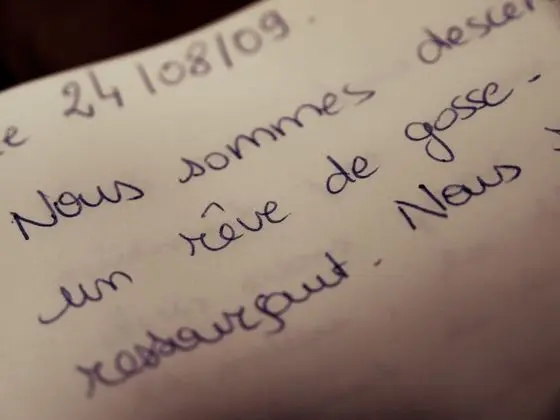 e 24/08/09.
Nous sommes descen
un rêve de gosse.
ressourçant. Nous s